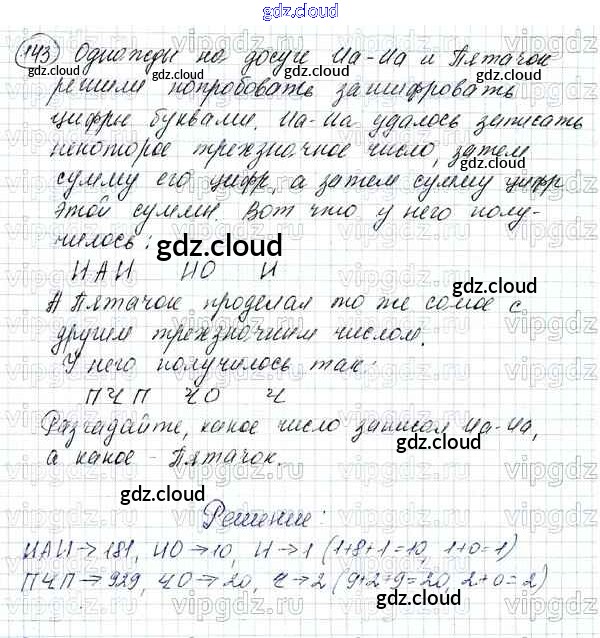 gdz.cloud
143 Однажды на досуге Иа-Иа и Пятачок
решили попробовать зашифровать
цифры буквами. Иа-Иа удалось записать
некоторое трехзначное число, затем
сумму его цифр, а затем сумму цифр
этой суммы. Вот что у него полу-
чилось:
ИАИ ИО И
А Пятачок проделал то же самое с
другим трехзначным числом.
У него получилось так:
ПЧП ЧО Ч
Разгадайте, какое число записал Иа-Иа,
а какое - Пятачок.
Решение:
ИАИ → 181, ИО → 10, И → 1 (1+8+1=10, 1+0=1)
ПЧП → 929, ЧО → 20, Ч → 2 (9+2+9=20, 2+0=2)